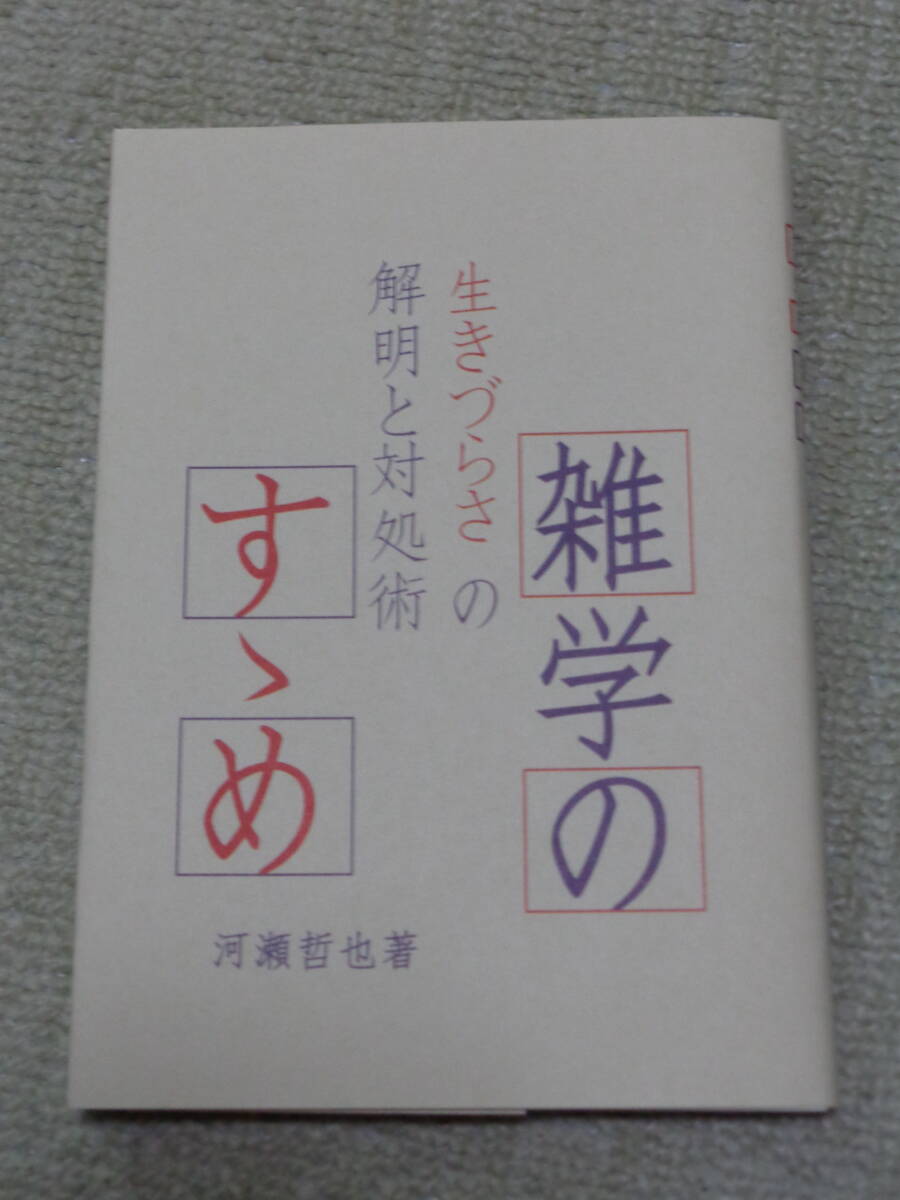 雑学の
生きづらさの
解明と対処術
すゝめ
河瀬哲也著